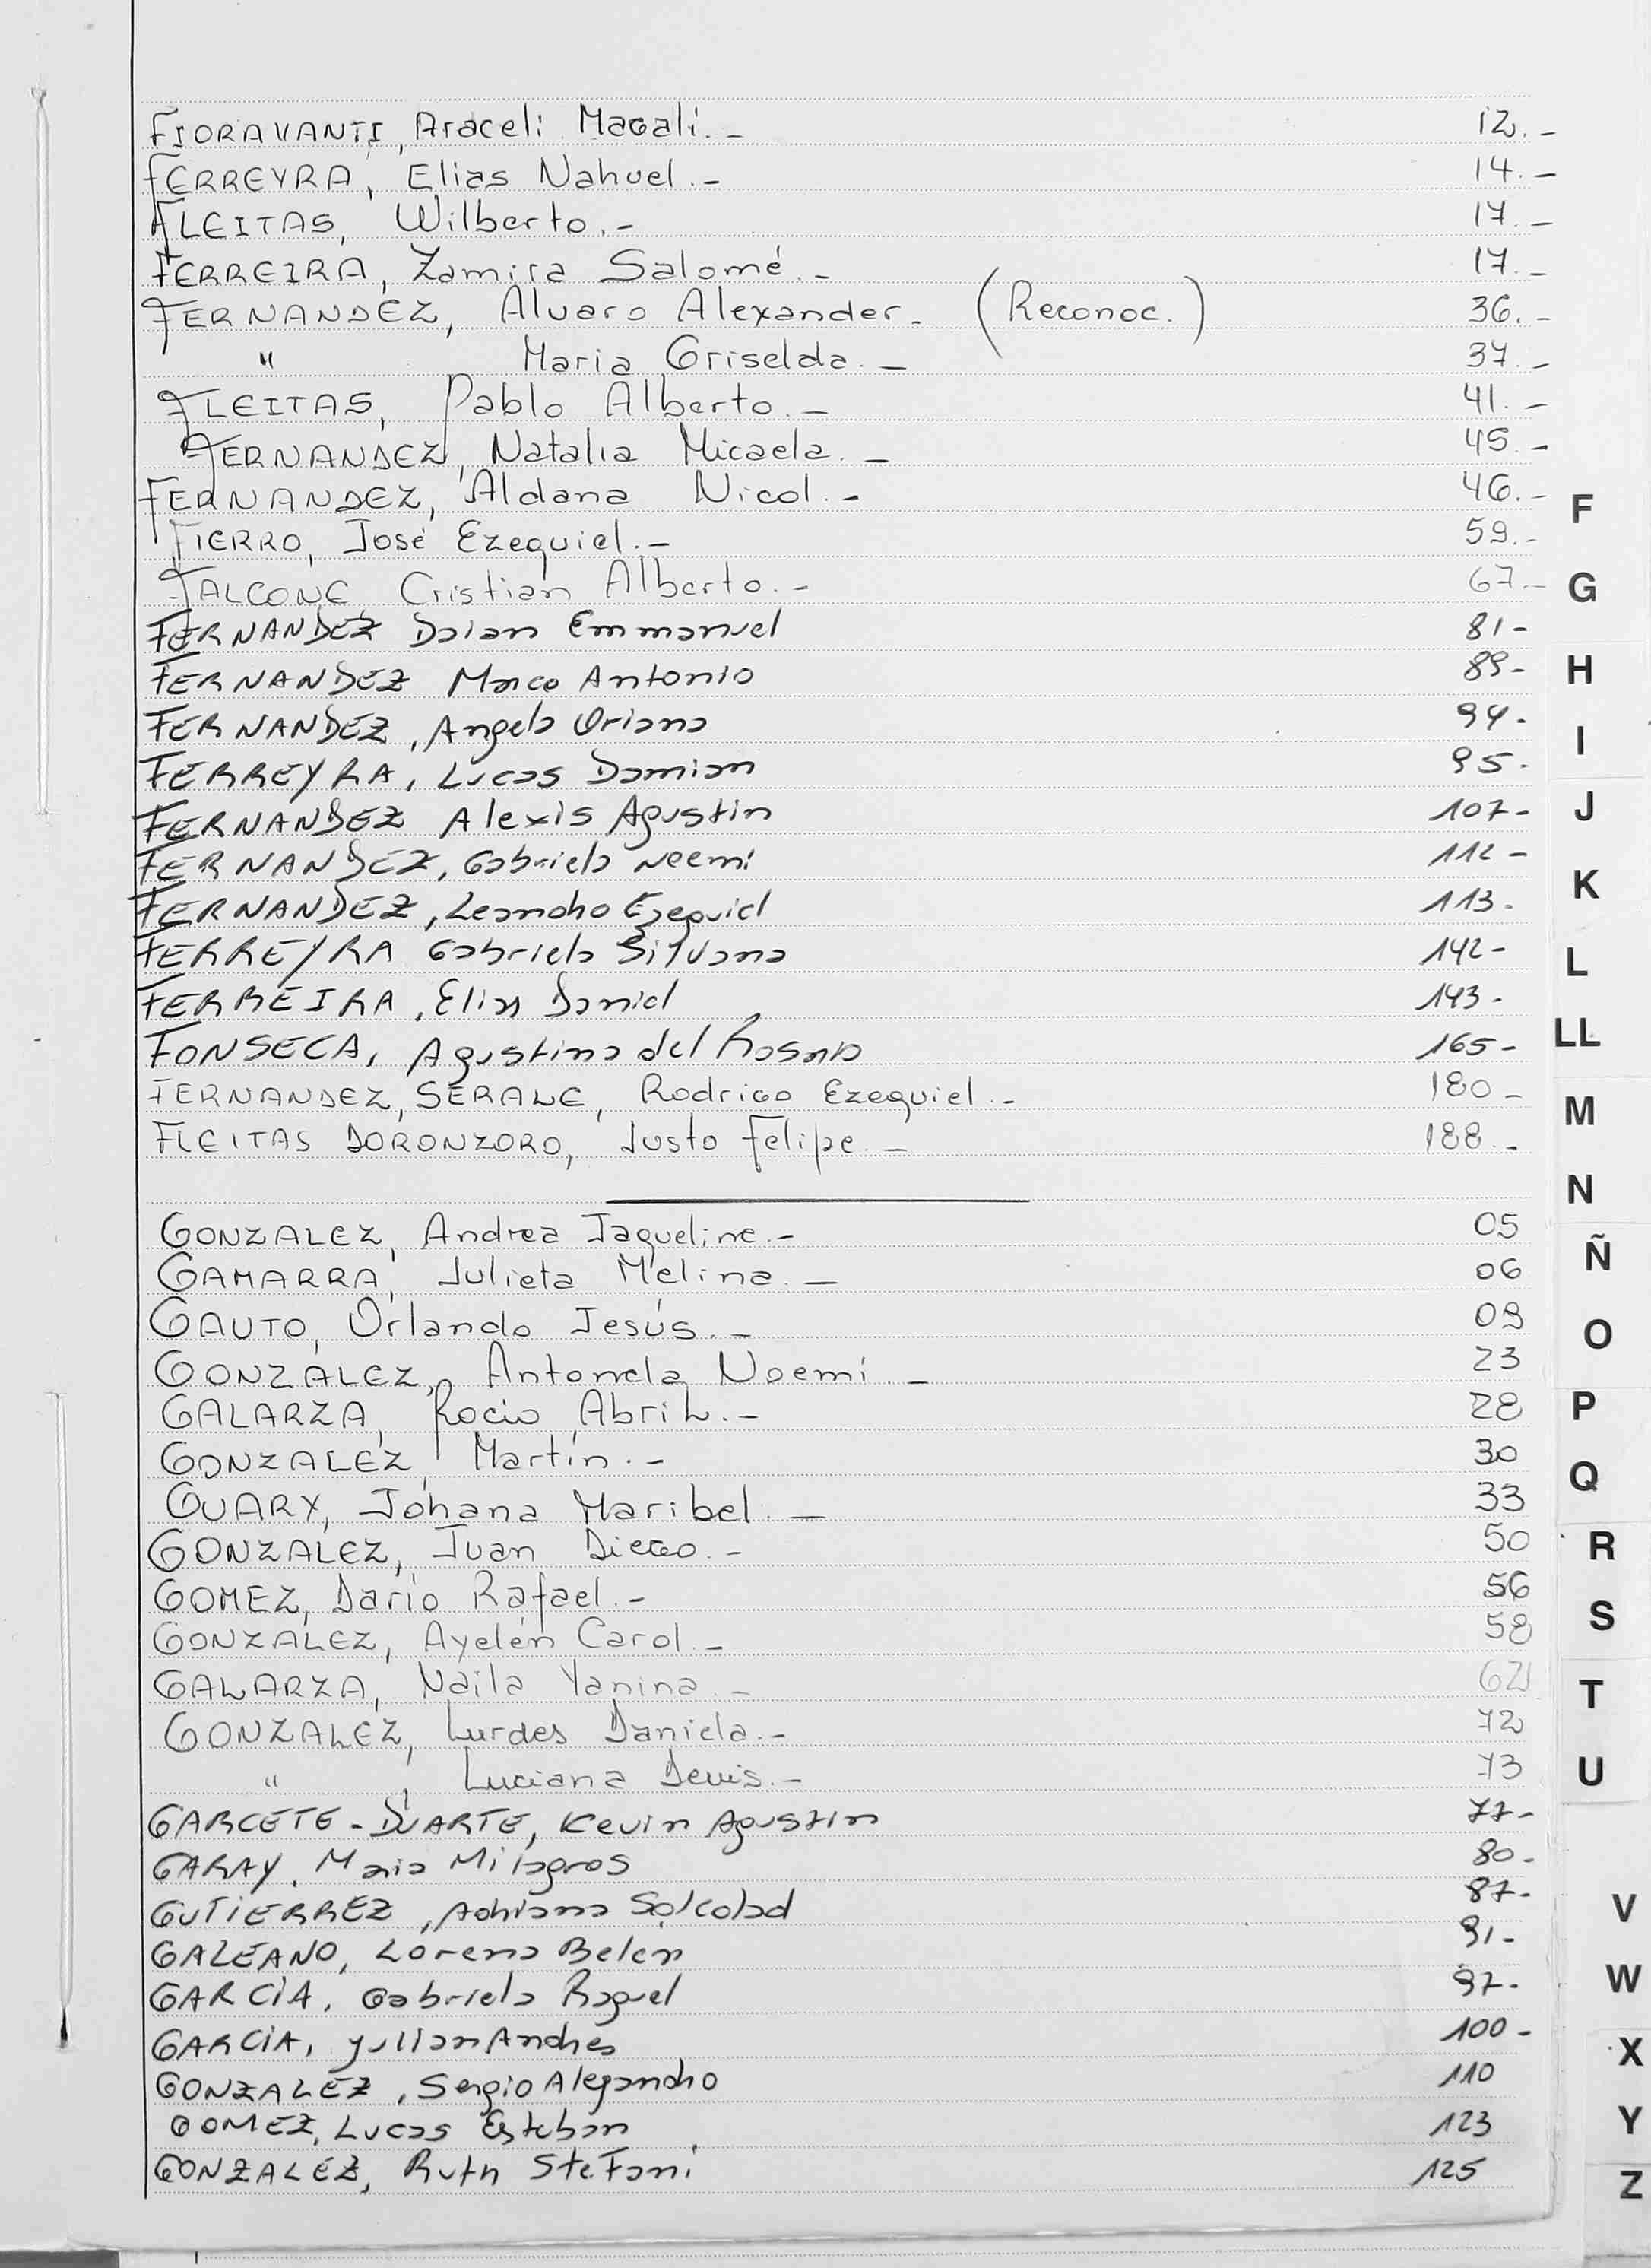 FIORAVANTI, Araceli Magali.- 12.-
FERREYRA, Elias Nahuel.- 14.-
FLEITAS, Wilberto.- 17.-
FERREIRA, Zamira Salomé.- 17.-
FERNANDEZ, Alvaro Alexander.- (Reconoc.) 36.-
" Maria Griselda.- 37.-
FLEITAS, Pablo Alberto.- 41.-
FERNANDEZ, Natalia Micaela.- 45.-
FERNANDEZ, Aldana Nicol.- 46.-
FIERRO, José Ezequiel.- 59.-
FALCONE, Cristian Alberto.- 67.-
FERNANDEZ Daian Emmanuel 81-
FERNANDEZ Marco Antonio 89-
FERNANDEZ, Angela Oriana 94-
FERREYRA, Lucas Damian 95-
FERNANDEZ Alexis Agustin 107-
FERNANDEZ, Gabriela Noemi 112-
FERNANDEZ, Leandro Ezequiel 113-
FERREYRA Gabriela Silvana 142-
FERREIRA, Elias Daniel 143-
FONSECA, Agustina del Rosario 165-
FERNANDEZ, SERALE, Rodrigo Ezequiel.- 180-
FLEITAS DORONZORO, Justo Felipe.- 188.-
GONZALEZ, Andrea Jaqueline.- 05
GAMARRA, Julieta Melina.- 06
GAUTO, Orlando Jesús.- 09
GONZALEZ, Antonela Noemí.- 23
GALARZA, Rocio Abril.- 28
GONZALEZ, Martín.- 30
GUARY, Johana Maribel.- 33
GONZALEZ, Juan Diego.- 50
GOMEZ, Darío Rafael.- 56
GONZALEZ, Ayelén Carol.- 58
GALARZA, Naila Yanina.- 62
GONZALEZ, Lurdes Daniela.- 72
" , Luciana Denis.- 73
GARCETE-DUARTE, Kevin Agustin 77-
GARAY, Maria Milagros 80-
GUTIERREZ, Adriana Soledad 87-
GALEANO, Lorena Belen 91-
GARCIA, Gabriela Raquel 97-
GARCIA, Yullian Andres 100-
GONZALEZ, Sergio Alejandro 110
GOMEZ, Lucas Esteban 123
GONZALEZ, Ruth Stefani 125
F
G
H
I
J
K
L
LL
M
N
Ñ
O
P
Q
R
S
T
U
V
W
X
Y
Z